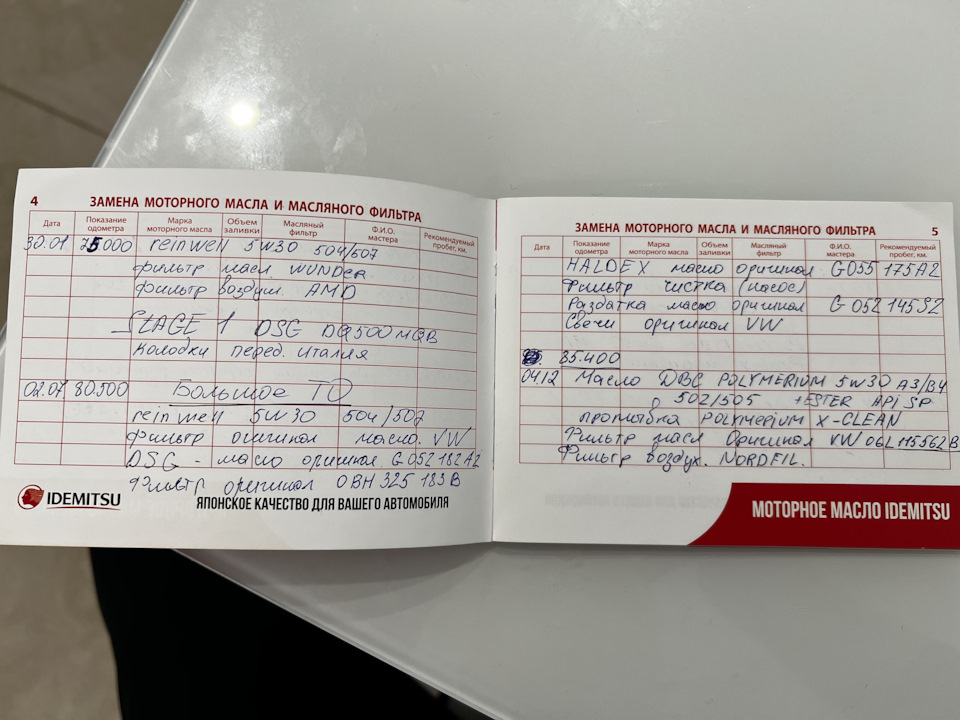 4 ЗАМЕНА МОТОРНОГО МАСЛА И МАСЛЯНОГО ФИЛЬТРА
Дата Показание одометра Марка моторного масла Объем заливки Масляный фильтр Ф.И.О. мастера Рекомендуемый пробег, км.
30.01 75000 reinwell 5W30 504/507
фильтр масл WUNDER
фильтр воздуш. AMD
STAGE 1 DSG DQ500MQB
Колодки перед. италия
02.07 80.500 Большое ТО
reinwell 5W30 504/507
Фильтр оригинал масло. VW
DSG - масло оригинал. G 052 182 A2
Фильтр оригинал 0BH 325 183 B
IDEMITSU
ЯПОНСКОЕ КАЧЕСТВО ДЛЯ ВАШЕГО АВТОМОБИЛЯ
ЗАМЕНА МОТОРНОГО МАСЛА И МАСЛЯНОГО ФИЛЬТРА 5
Дата Показание одометра Марка моторного масла Объем заливки Масляный фильтр Ф.И.О. мастера Рекомендуемый пробег, км.
HALDEX масло оригинал G 055 175A2
Фильтр чистка (насос)
Раздатка масло оригинал G 052 145S2
Свечи оригинал VW
85.400
04.12 Масло DBC POLYMERIUM 5W30 A3/B4
502/505 +ESTER API SP
промывка POLYMERIUM X-CLEAN
Фильтр масл Оригинал VW 06L115562B
Фильтр воздух. NORDFIL.
МОТОРНОЕ МАСЛО IDEMITSU